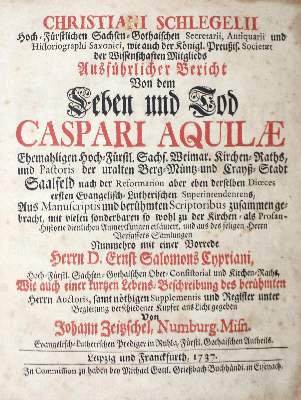 CHRISTIANI SCHLEGELII
Hoch-Fürstlichen Sachsen-Gothaischen Secretarii, Antiquarii und
Historiographi Saxonici, wie auch der Königl. Preußis. Societet
der Wissenschaften Mitglieds
Ausführlicher Bericht
Von dem
Leben und Tod
CASPARI AQUILÆ
Ehemahligen Hoch-Fürstl. Sachs. Weimar. Kirchen-Raths,
und Pastoris der uralten Berg-Müntz-und Crayß-Stadt
Saalfeld nach der Reformation aber eben derselben Diœces
ersten Evangelisch-Lutherischen Superintendentens,
Aus Manuscriptis und berühmten Scriptoribus zusammen ge-
bracht, mit vielen sonderbaren so wohl zu der Kirchen- als Profan-
Historie dienlichen Anmerckungen erläutert, und aus des seligen Herrn
Verfassers Samlungen
Nunmehro mit einer Vorrede
Herrn D. Ernst Salomons Cypriani,
Hoch-Fürstl. Sachsen-Gothaischen Ober-Consistorial und Kirchen-Raths,
Wie auch einer kurtzen Lebens-Beschreibung des berühmten
Herrn Auctoris, samt nöthigen Supplementis und Register unter
Begleitung verschiedener Kupfer ans Licht gegeben
Von
Johann Zeitzschel, Numburg. Misn.
Evangelisch-Lutherischen Prediger in Ruhla, Fürstl. Gothaischen Antheils.
Leipzig und Franckfurth, 1737.
In Commission zu haben bey Michael Gottl. Grießbach Buchhändl. in Eisenach.